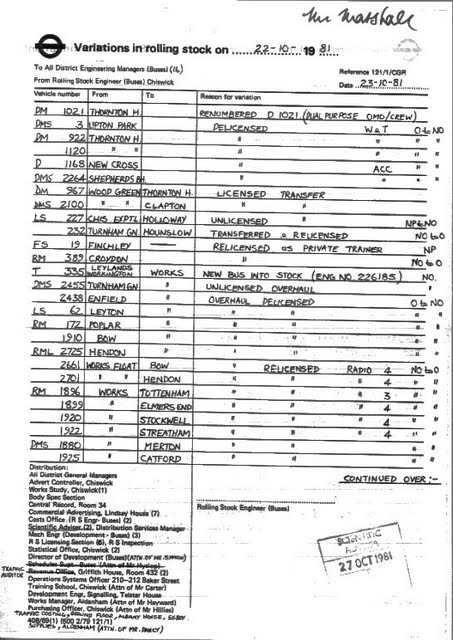 Mr Marshall
Variations in rolling stock on 22-10- 1981
To All District Engineering Managers (Buses) (16)
From Rolling Stock Engineer (Buses) Chiswick
Reference 121/1/CGR
Date 23-10-81
Vehicle number From To Reason for variation
DM 1021 THORNTON H. RENUMBERED D 1021 (DUAL PURPOSE OMO/CREW)
DMS 3 UPTON PARK DELICENSED W&T O to NO
DM 922 THORNTON H. " " "
1120 " " " " "
D 1168 NEW CROSS " ACC " "
DMS 2264 SHEPHERDS B. " " "
DM 967 WOOD GREEN THORNTON H. LICENSED TRANSFER
DMS 2100 " " CLAPTON " "
LS 227 CHIS. EXPTL HOLLOWAY UNLICENSED " NP to NO
232 TURNHAM GN. HOUNSLOW TRANSFERRED & RELICENSED NO to O
FS 19 FINCHLEY — RELICENSED as PRIVATE TRAINER NP
RM 389 CROYDON NO to O
T 335 LEYLANDS WORKINGTON WORKS NEW BUS INTO STOCK (ENG NO. 226185) NO.
DMS 2455 TURNHAM GN " UNLICENSED OVERHAUL
2438 ENFIELD " OVERHAUL DELICENSED O to NO
LS 62 LEYTON " " " " "
RM 172 POPLAR " " " " "
1910 BOW " " " " "
RML 2725 HENDON " " " " "
2661 WORKS FLOAT BOW " RELICENSED RADIO 4 NO to O
2701 " " HENDON " " " 4 " "
RM 1896 WORKS TOTTENHAM " " " 3 " "
1899 " ELMERS END " " " 4 " "
1920 " STOCKWELL " " " 4 " "
1922 " STREATHAM " " " 4 " "
DMS 1880 " MERTON " " " "
1925 " CATFORD " " " "
CONTINUED OVER:-
Distribution:
All District General Managers
Advert Controller, Chiswick
Works Study, Chiswick(1)
Body Spec Section
Central Record, Room 34
Commercial Advertising, Lindsay House (7)
Costs Office (R S Engr- Buses) (2)
Scientific Adviser (2), Distribution Services Manager
Mech Engr (Development - Buses) (3)
R S Licensing Section (6), R S Inspection
Statistical Office, Chiswick (2)
Director of Development (Buses)
Schedules Supt - Buses (Attn of Mr Hyslop)
TRAFFIC AUDITOR
Revenue Office, Griffith House, Room 432 (2)
Operations Systems Officer 210-212 Baker Street
Training School, Chiswick (Attn of Mr Carter)
Development Engr, Signalling, Telstar House
Works Manager, Aldenham (Attn of Mr Hayward)
Purchasing Officer, Chiswick (Attn of Mr Hillies)
TRAFFIC COSTING, GROUND FLOOR, ALBANY HOUSE,
408/69(1) (500 2/79 121/1)
SUPPLIES, ALDENHAM
Rolling Stock Engineer (Buses)
SCIENTIFIC
27 OCT 1981